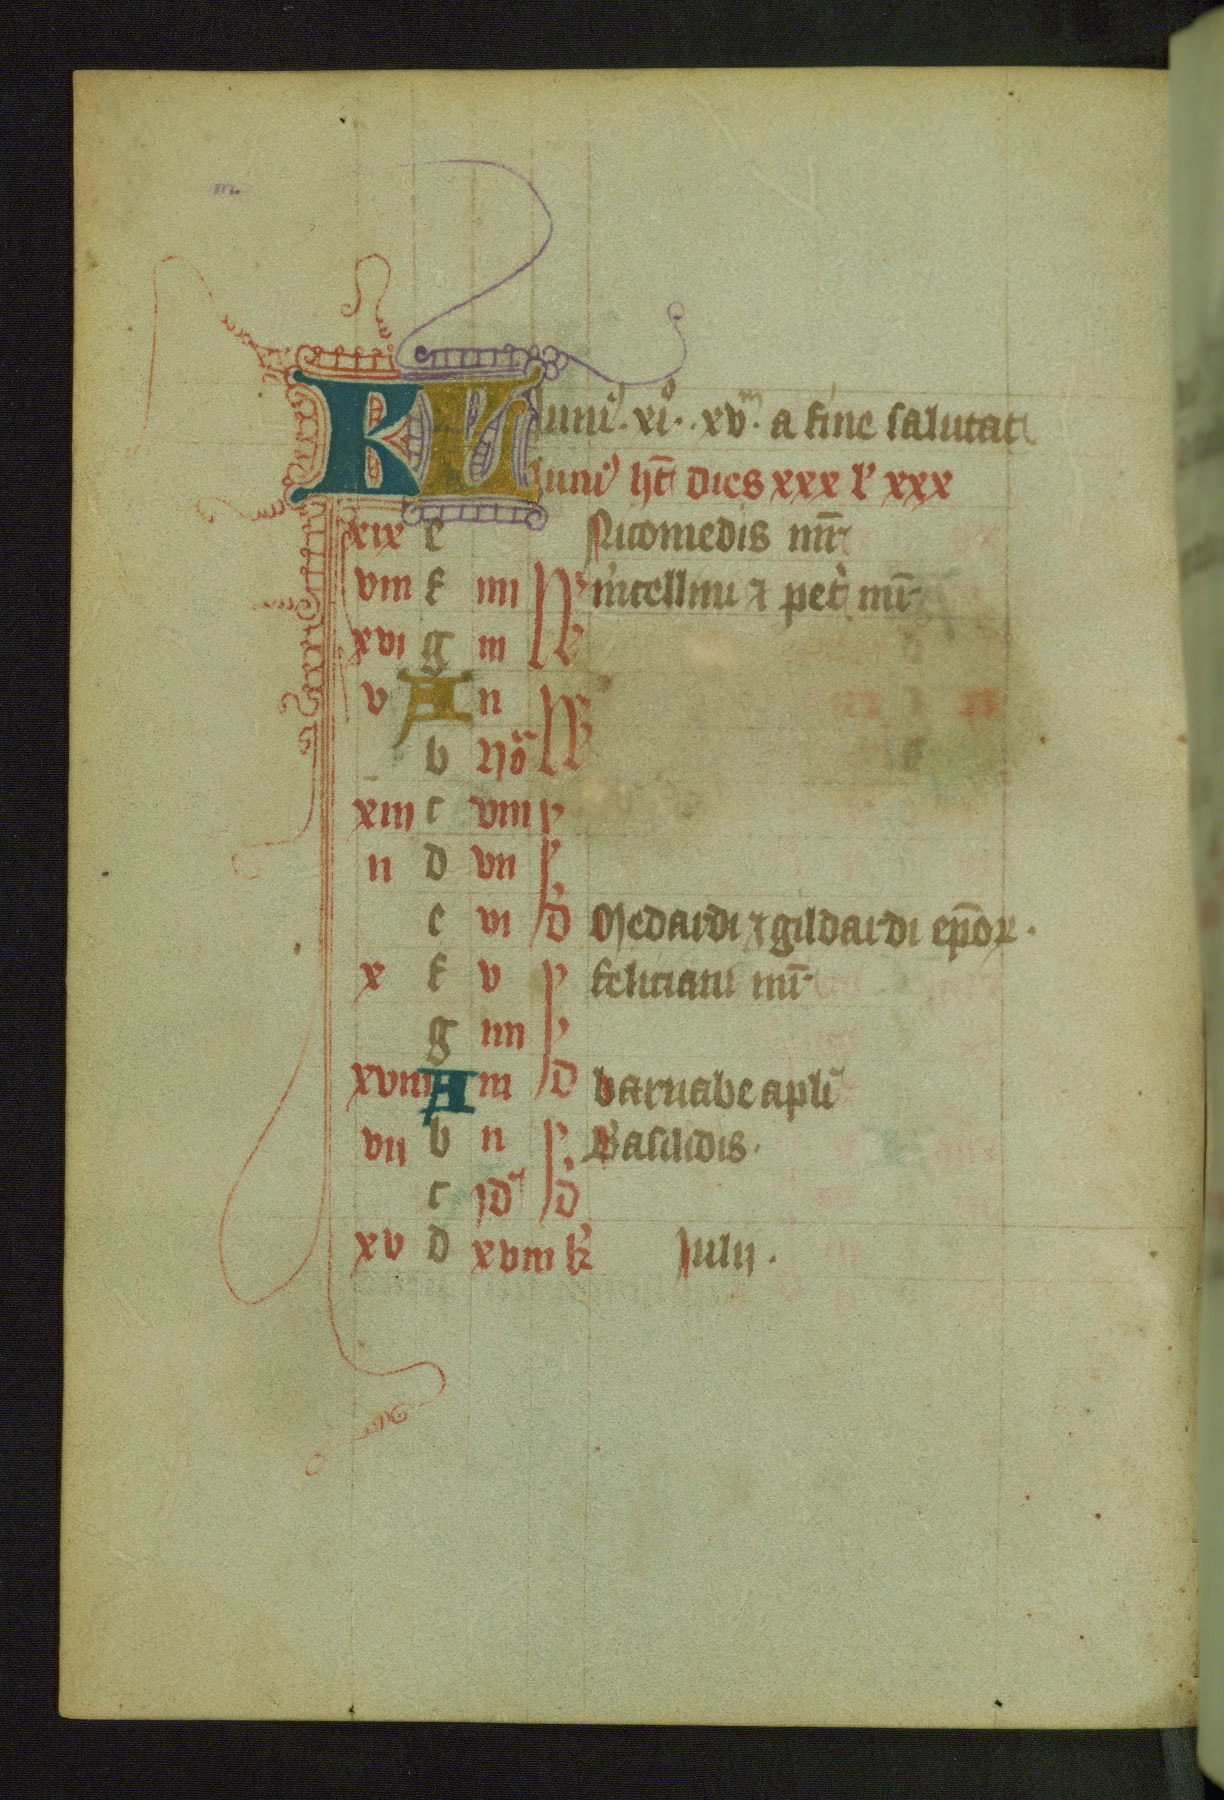 KL iuni᷒. xi᷒. xvᵐ. a fine salutat
iuni᷒ hēt dies xxx lᵃ xxx
xix e Nicomedis mr̄
viii f iiii N m᷒cellini ⁊ pet᷒ mr̄
xvi g iii N
v A ii N
b Nōᵃˢ N
xiii c viii I
ii d vii I
e vi ID Medardi ⁊ gildardi ep̄oꝝ.
x f v I feliciani mr̄
g iiii I
xviii A iii ID barnabe apli
vii b ii I Basilidis.
c ID᷒ ID
xv d xviii kl᷒ Iulii.